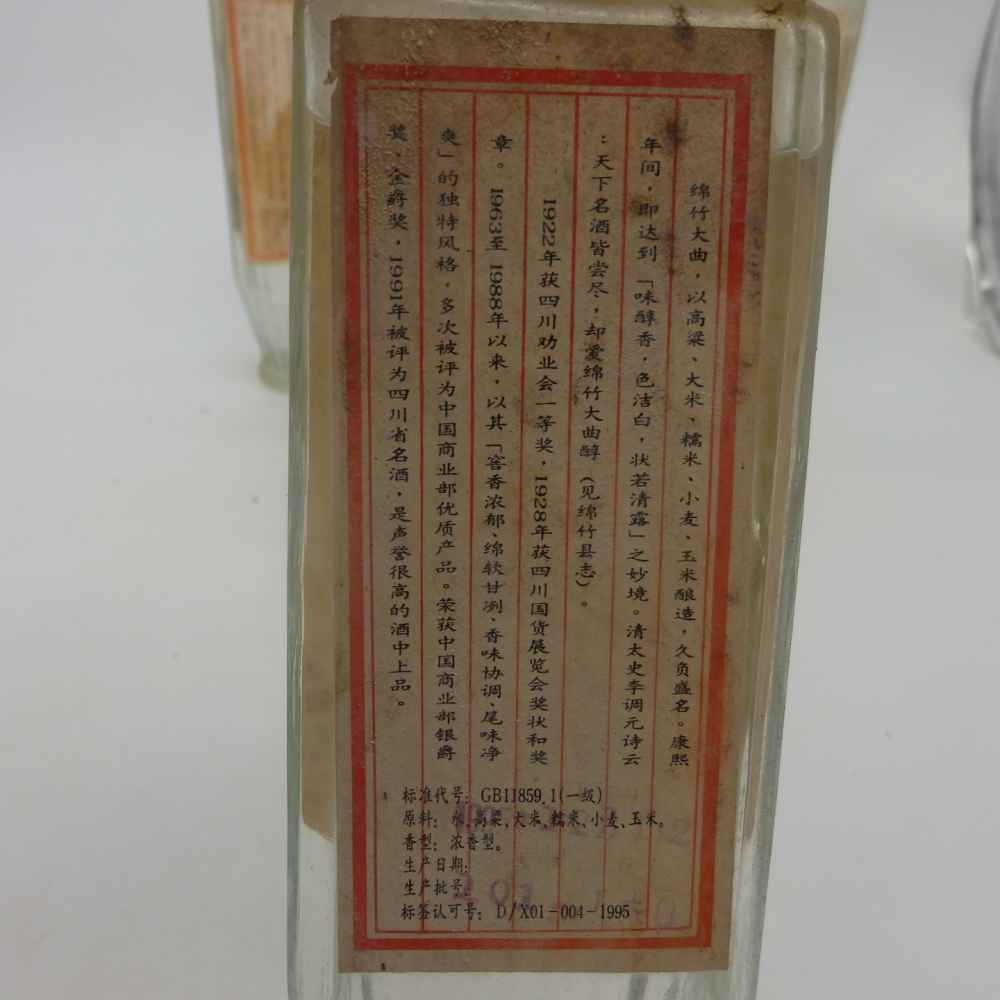 绵竹大曲，以高粱、大米、糯米、小麦、玉米酿造，久负盛名。康熙
年间，即达到「味醇香，色洁白，状若清露」之妙境。清太史李调元诗云
：天下名酒皆尝尽，却爱绵竹大曲醇（见绵竹县志）。
1922年获四川劝业会一等奖，1928年获四川国货展览会奖状和奖
章。1963至1988年以来，以其「窖香浓郁、绵软甘冽、香味协调、尾味净
爽」的独特风格，多次被评为中国商业部优质产品。荣获中国商业部银爵
奖、金爵奖，1991年被评为四川省名酒，是声誉很高的酒中上品。
标准代号：GB11859.1(一级)
原料：水、高粱、大米、糯米、小麦、玉米。
香型：浓香型。
生产日期：
生产批号
标签认可号：D/X01-004-1995